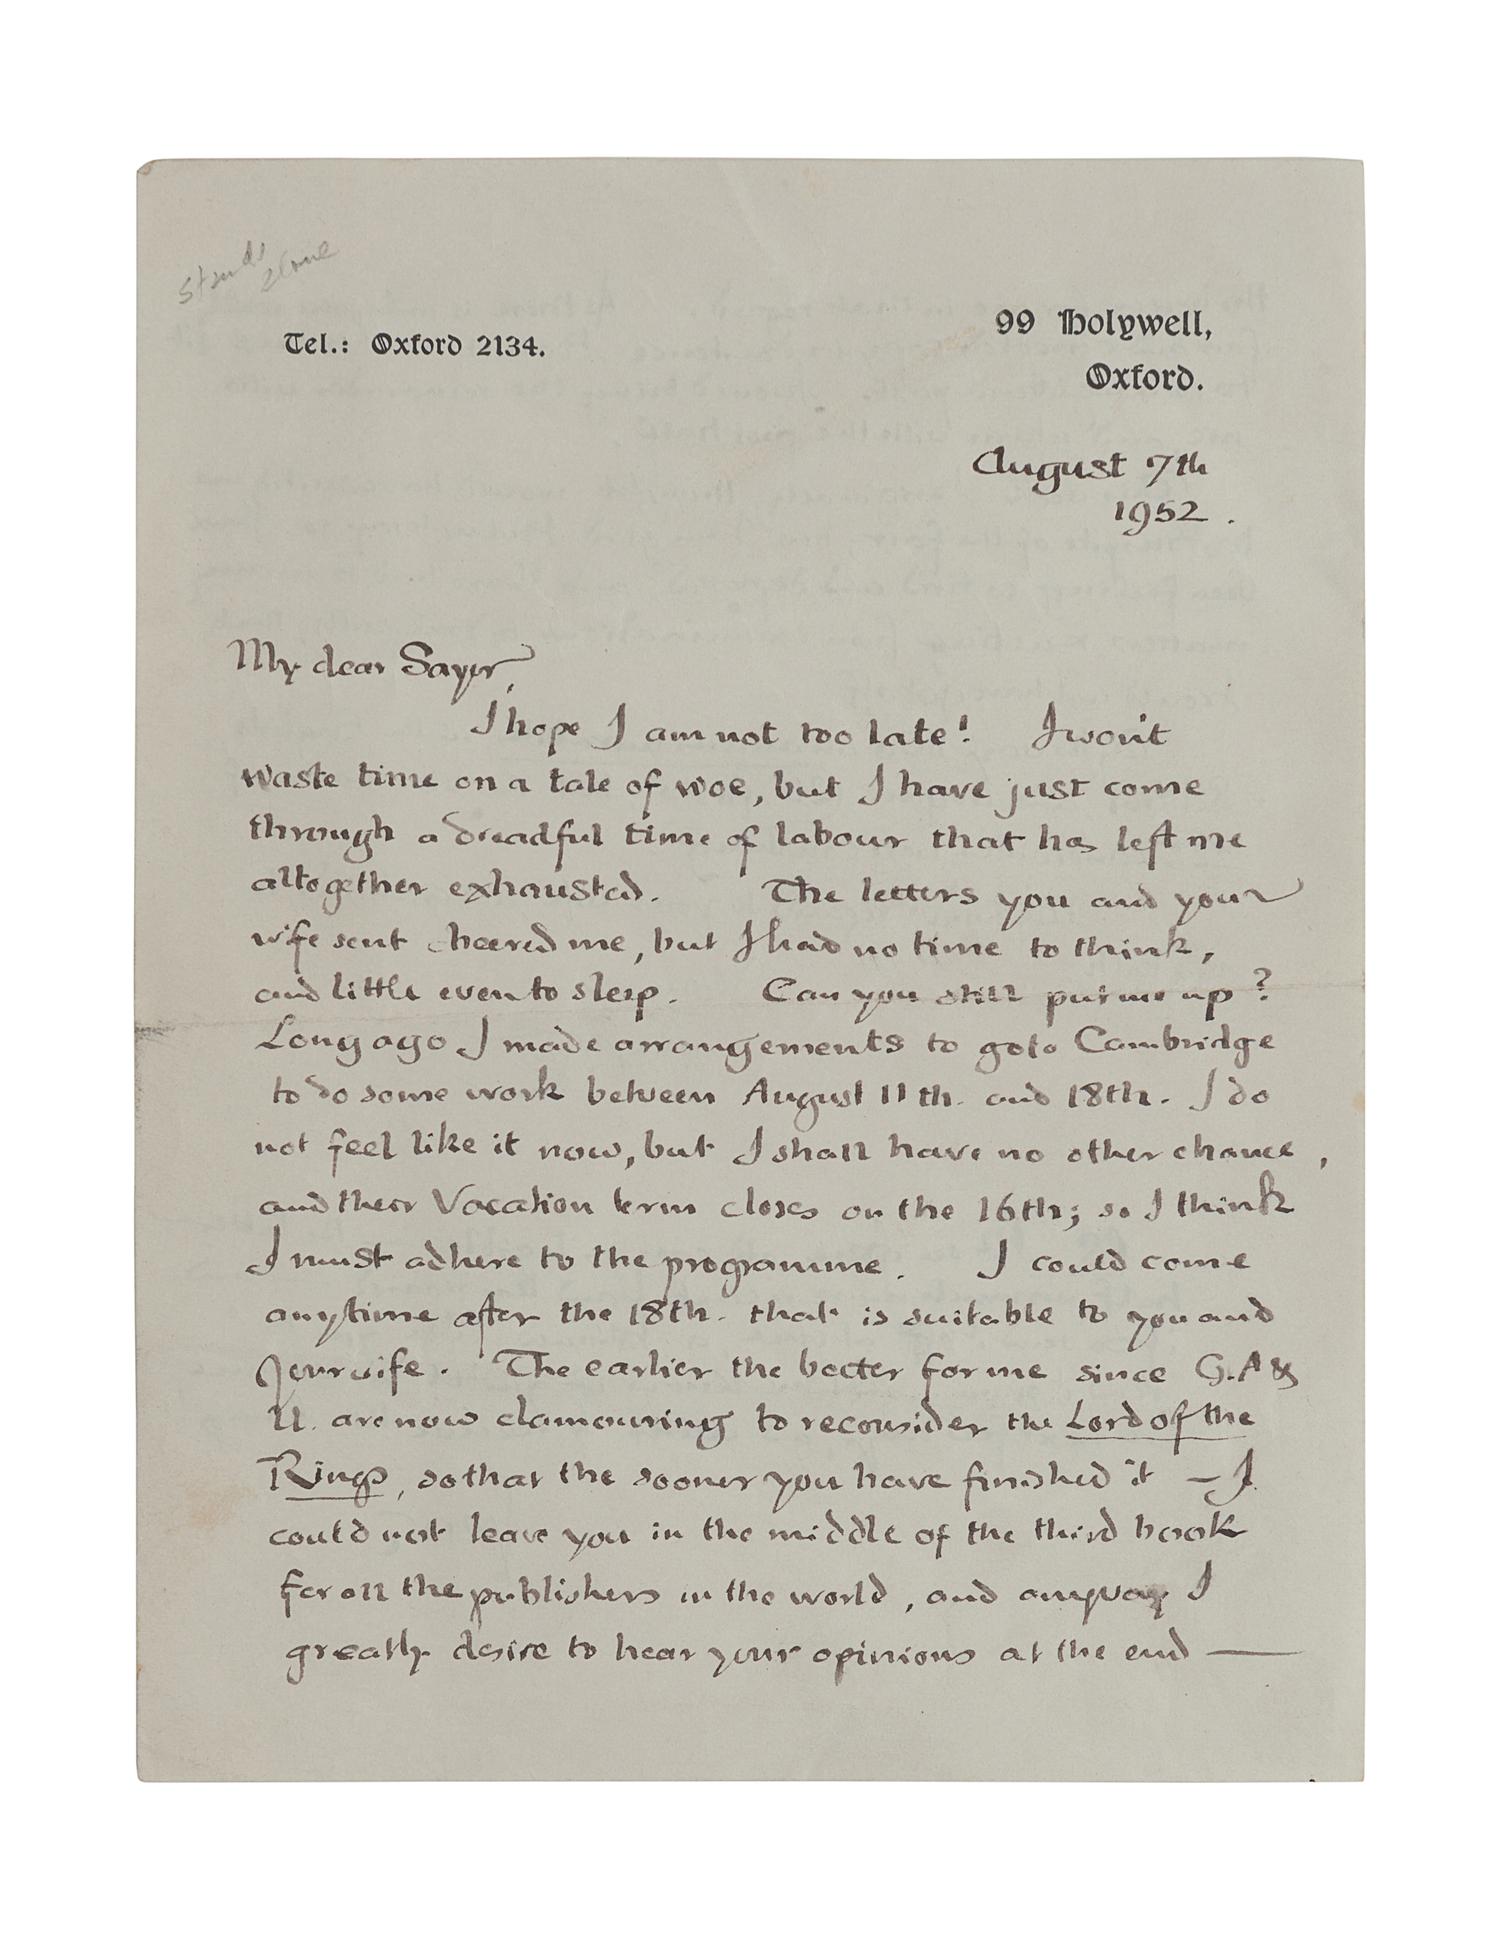 stands
alone
Tel.: Oxford 2134.
99 Holywell,
Oxford.
August 7th
1952.
My dear Sayer,
I hope I am not too late! I won't
waste time on a tale of woe, but I have just come
through a dreadful time of labour that has left me
altogether exhausted. The letters you and your
wife sent cheered me, but I had no time to think,
and little even to sleep. Can you still put me up?
Long ago I made arrangements to go to Cambridge
to do some work between August 11th. and 18th. I do
not feel like it now, but I shall have no other chance,
and their Vacation term closes on the 16th; so I think
I must adhere to the programme. I could come
anytime after the 18th. that is suitable to you and
your wife. The earlier the better for me since G. A &
U. are now clamouring to reconsider the Lord of the
Rings, so that the sooner you have finished it — I
could not leave you in the middle of the third book
for all the publishers in the world, and anyway I
greatly desire to hear your opinions at the end —